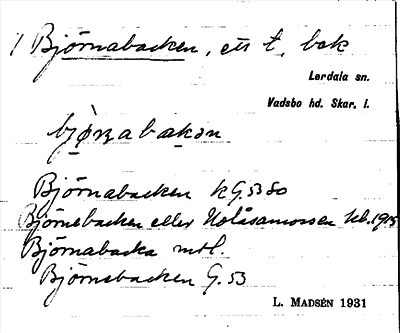 1 Björnabacken, ett t, bek
Lerdala sn.
Vadsbo hd. Skar. l.
bjø̀ṛnabakən
Björnabacken kG.53 80
Björnebacken eller Holåsamossen kb.1905
Björnabacka mtl.
Björnebacken G.53
L. MADSÉN 1931